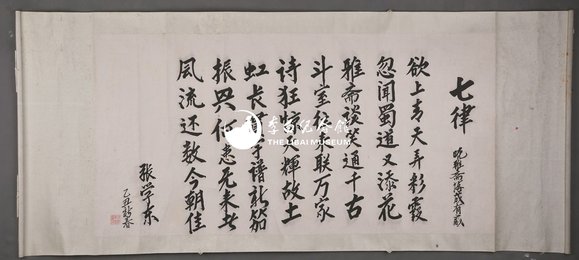 七律
雅斋
欲上青天弄彩霞
忽闻蜀道又添花
雅斋谈笑通千古
斗室往来联万家
诗狂惊辉故土
虹长字谱新笳
振兴何患无来者
风流还数今朝佳
张学东
乙丑春
李白纪念馆
THE LIBAI MUSEUM